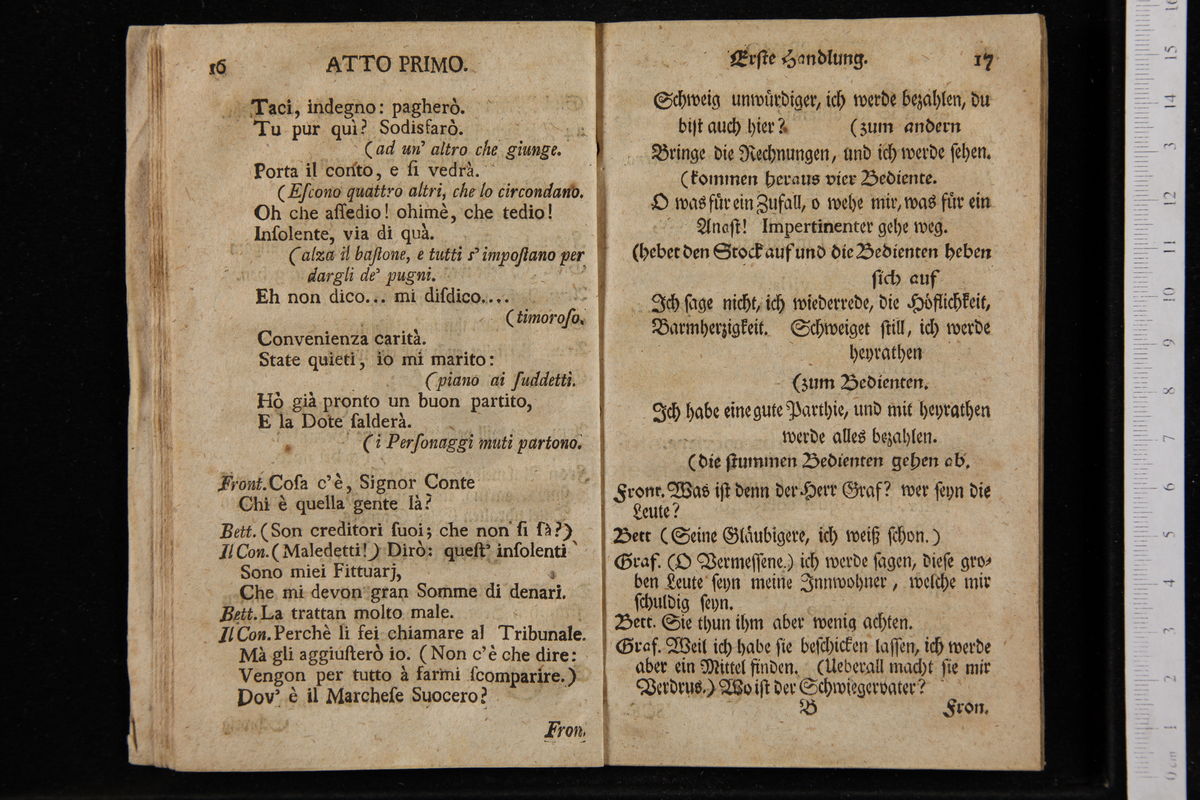 16 ATTO PRIMO.
Taci, indegno: pagherò.
Tu pur quì? Sodisfarò.
(ad un' altro che giunge.
Porta il conto, e ſi vedrà.
(Eſcono quattro altri, che lo circondano.
Oh che aſſedio! ohimè, che tedio!
Inſolente, via di quà.
(alza il baſtone, e tutti s' impoſtano per
dargli de' pugni.
Eh non dico... mi diſdico....
(timoroſo.
Convenienza carità.
State quieti, io mi marito:
(piano ai ſuddetti.
Hò già pronto un buon partito,
E la Dote ſalderà.
(i Perſonaggi muti partono.
Front. Coſa c'è, Signor Conte
Chi è quella gente là?
Bett. (Son creditori ſuoi; che non ſi ſà?)
Il Con. (Maledetti!) Dirò: queſt' inſolenti
Sono miei Fittuarj,
Che mi devon gran Somme di denari.
Bett. La trattan molto male.
Il Con. Perchè li fei chiamare al Tribunale.
Mà gli aggiuſterò io. (Non c'è che dire:
Vengon per tutto à farmi ſcomparire.)
Dov' è il Marcheſe Suocero?
Fron.
Erſte Handlung. 17
Schweig unwuͤrdiger, ich werde bezahlen, du
biſt auch hier? (zum andern
Bringe die Rechnungen, und ich werde ſehen.
(kommen heraus vier Bediente.
O was fuͤr ein Zufall, o wehe mir, was fuͤr ein
Angſt! Impertinenter gehe weg.
(hebet den Stock auf und die Bedienten heben
ſich auf
Ich ſage nicht, ich wiederrede, die Hoͤflichkeit,
Barmherzigkeit. Schweiget ſtill, ich werde
heyrathen
(zum Bedienten.
Ich habe eine gute Parthie, und mit heyrathen
werde alles bezahlen.
(die ſtummen Bedienten gehen ab.
Front. Was iſt denn der Herr Graf? wer ſeyn die
Leute?
Bett (Seine Glaͤubigere, ich weiß ſchon.)
Graf. (O Vermeſſene.) ich werde ſagen, dieſe gro⸗
ben Leute ſeyn meine Innwohner, welche mir
ſchuldig ſeyn.
Bett. Sie thun ihm aber wenig achten.
Graf. Weil ich habe ſie beſchicken laſſen, ich werde
aber ein Mittel finden. (Ueberall macht ſie mir
Verdrus.) Wo iſt der Schwiegervater?
B Fron.